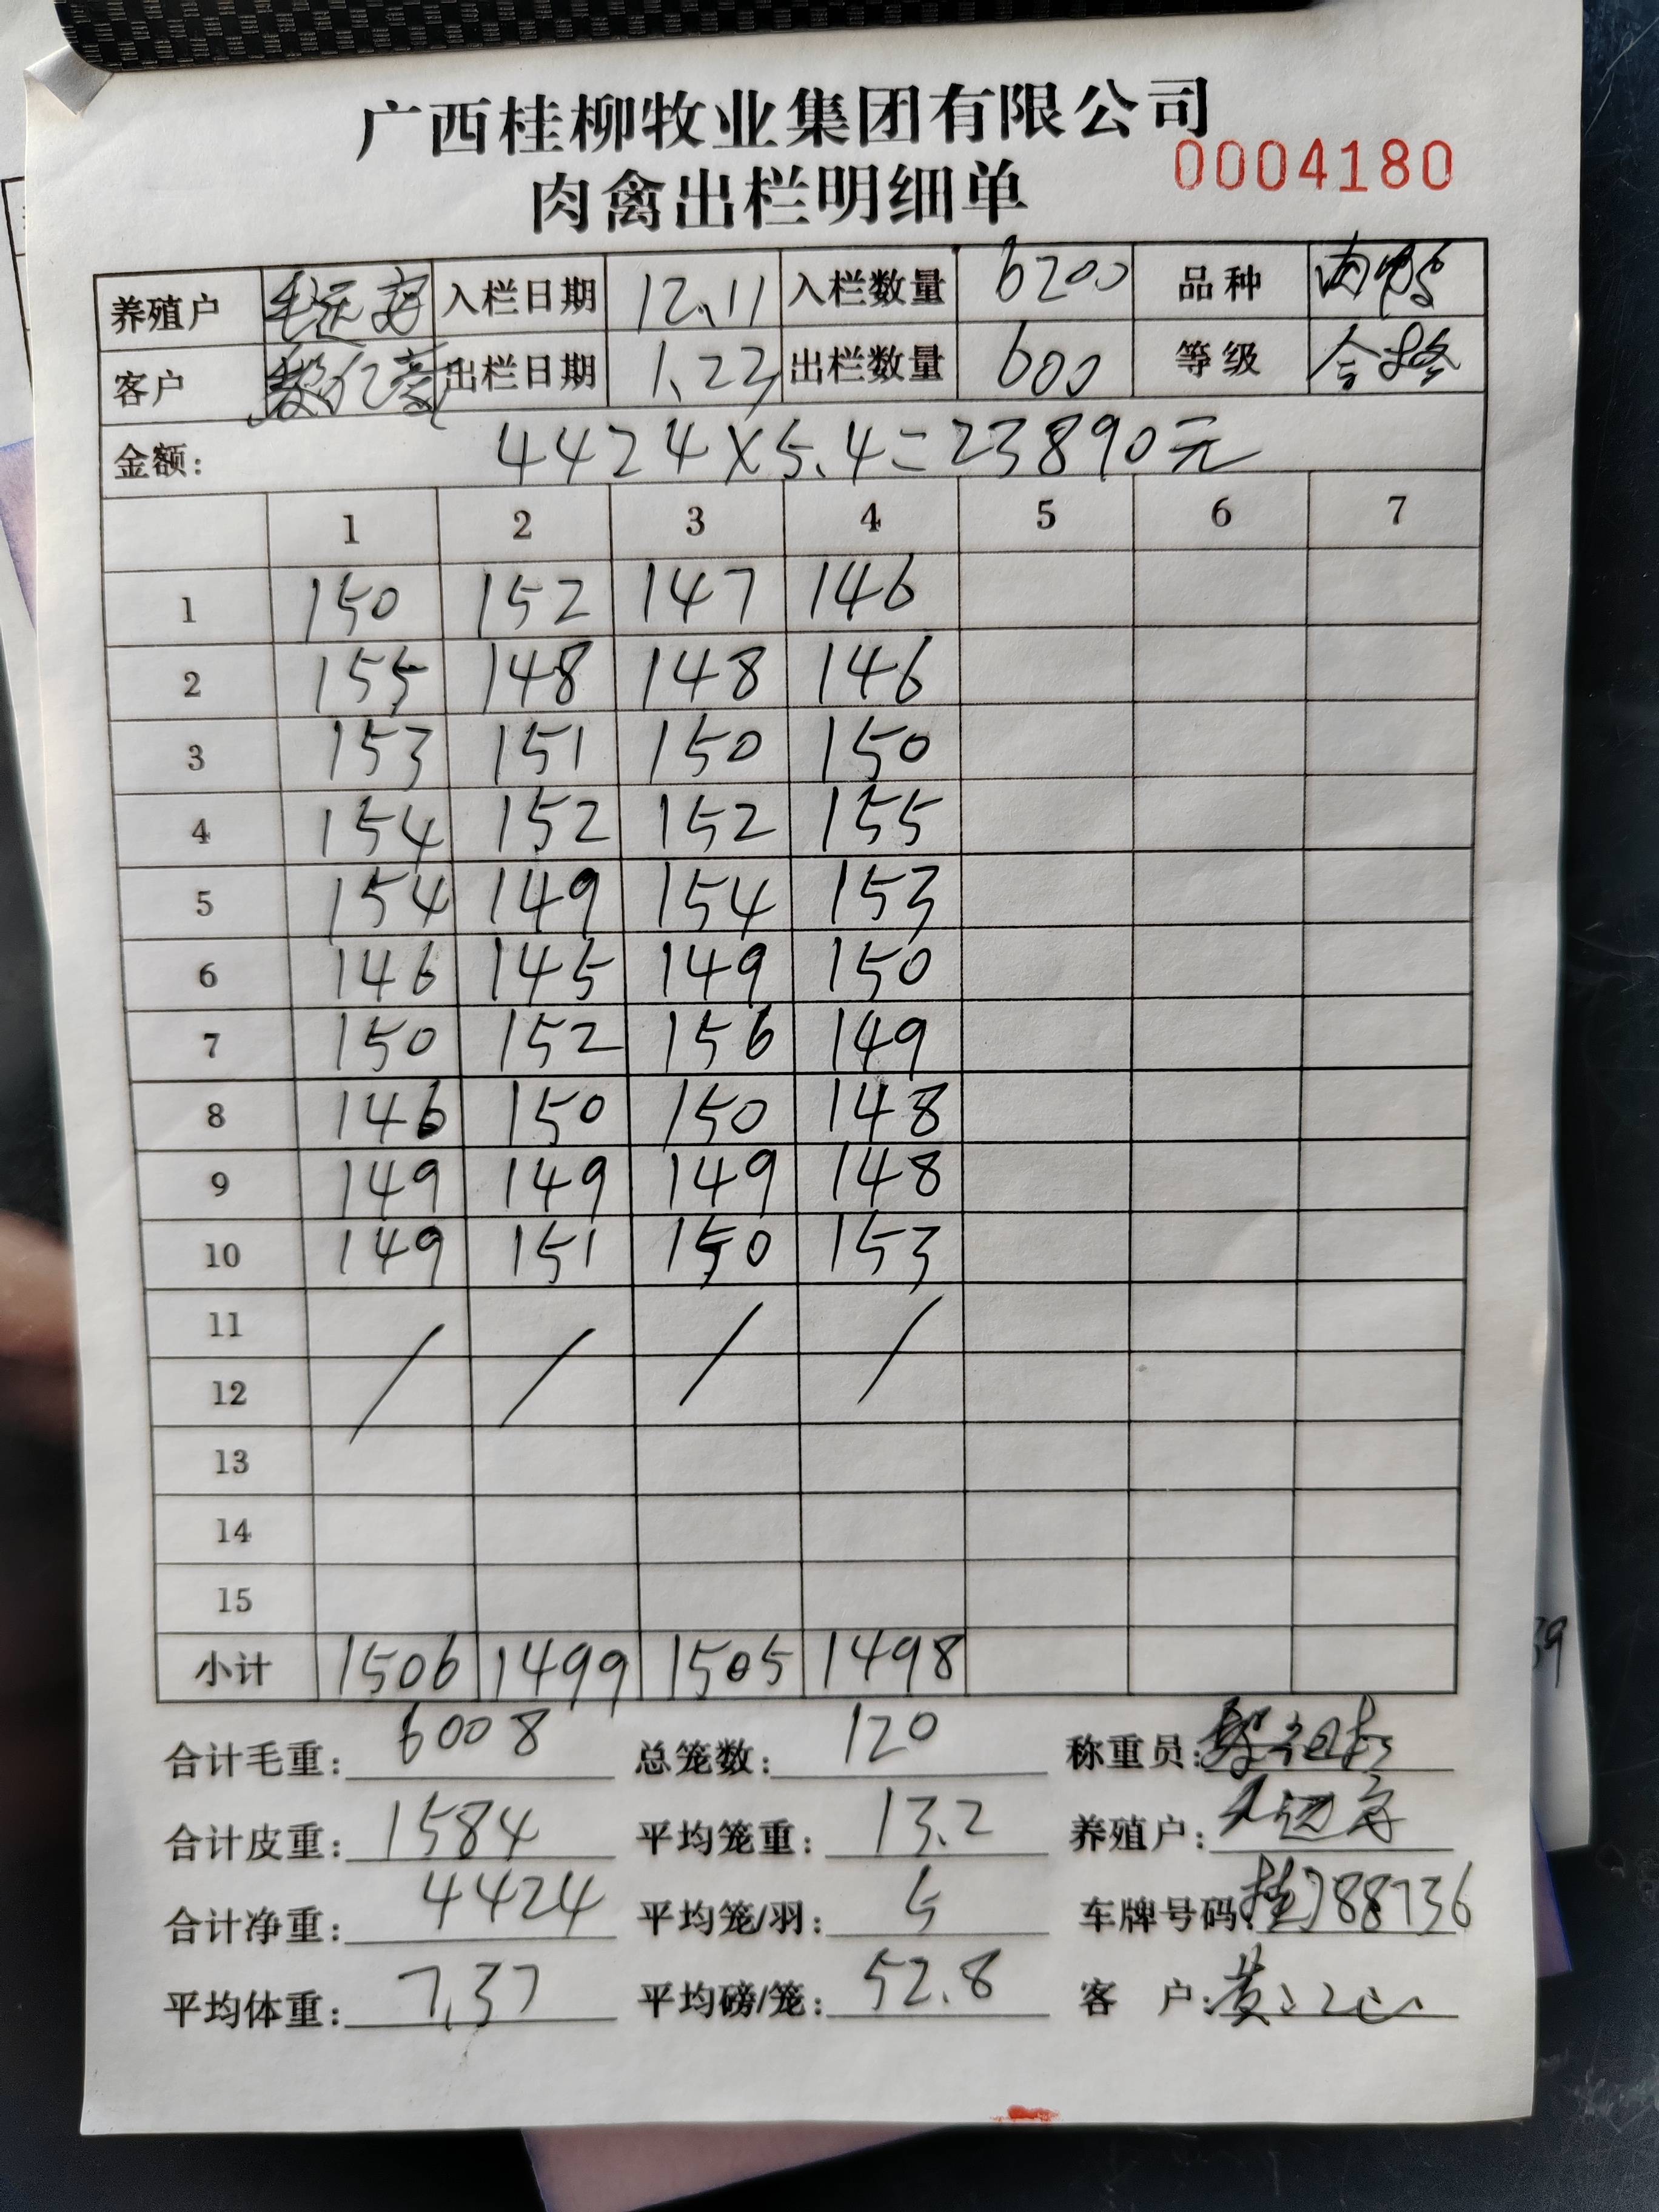 广西桂柳牧业集团有限公司
肉禽出栏明细单 0004180
养殖户 入栏日期 12.11 入栏数量 6200 品种 肉鸭
客户 出栏日期 1.23 出栏数量 600 等级 合格
金额: 4424×5.4=23890元
1 2 3 4 5 6 7
1 150 152 147 146
2 155 148 148 146
3 153 151 150 150
4 154 152 152 155
5 154 149 154 153
6 146 145 149 150
7 150 152 156 149
8 146 150 150 148
9 149 149 149 148
10 149 151 150 153
11
12
13
14
15
小计 1506 1499 1505 1498
合计毛重: 6008 总笼数: 120 称重员:
合计皮重: 1584 平均笼重: 13.2 养殖户:
合计净重: 4424 平均笼/羽: 5 车牌号码: 88736
平均体重: 7.37 平均磅/笼: 52.8 客户: